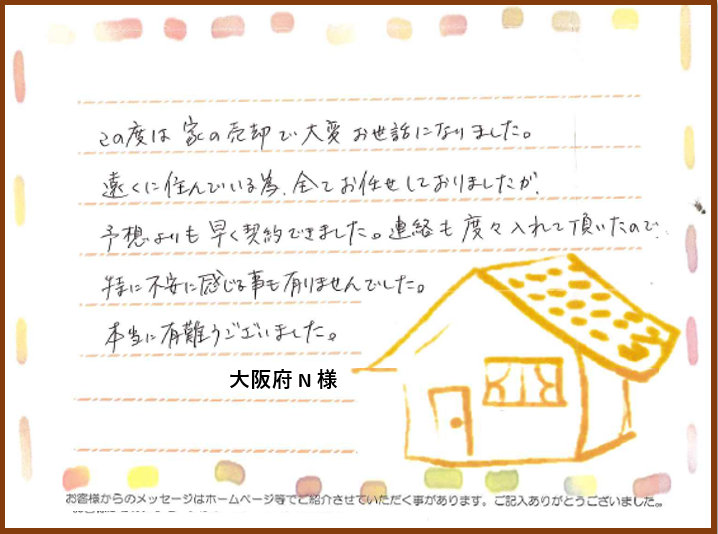 この度は家の売却で大変お世話になりました。
遠くに住んでいる為、全てお任せしておりましたが、
予想よりも早く契約できました。連絡も度々入れて頂いたので、
特に不安に感じる事も有りませんでした。
本当に有難うございました。
大阪府 N 様
お客様からのメッセージはホームページ等でご紹介させていただく事があります。ご記入ありがとうございました。